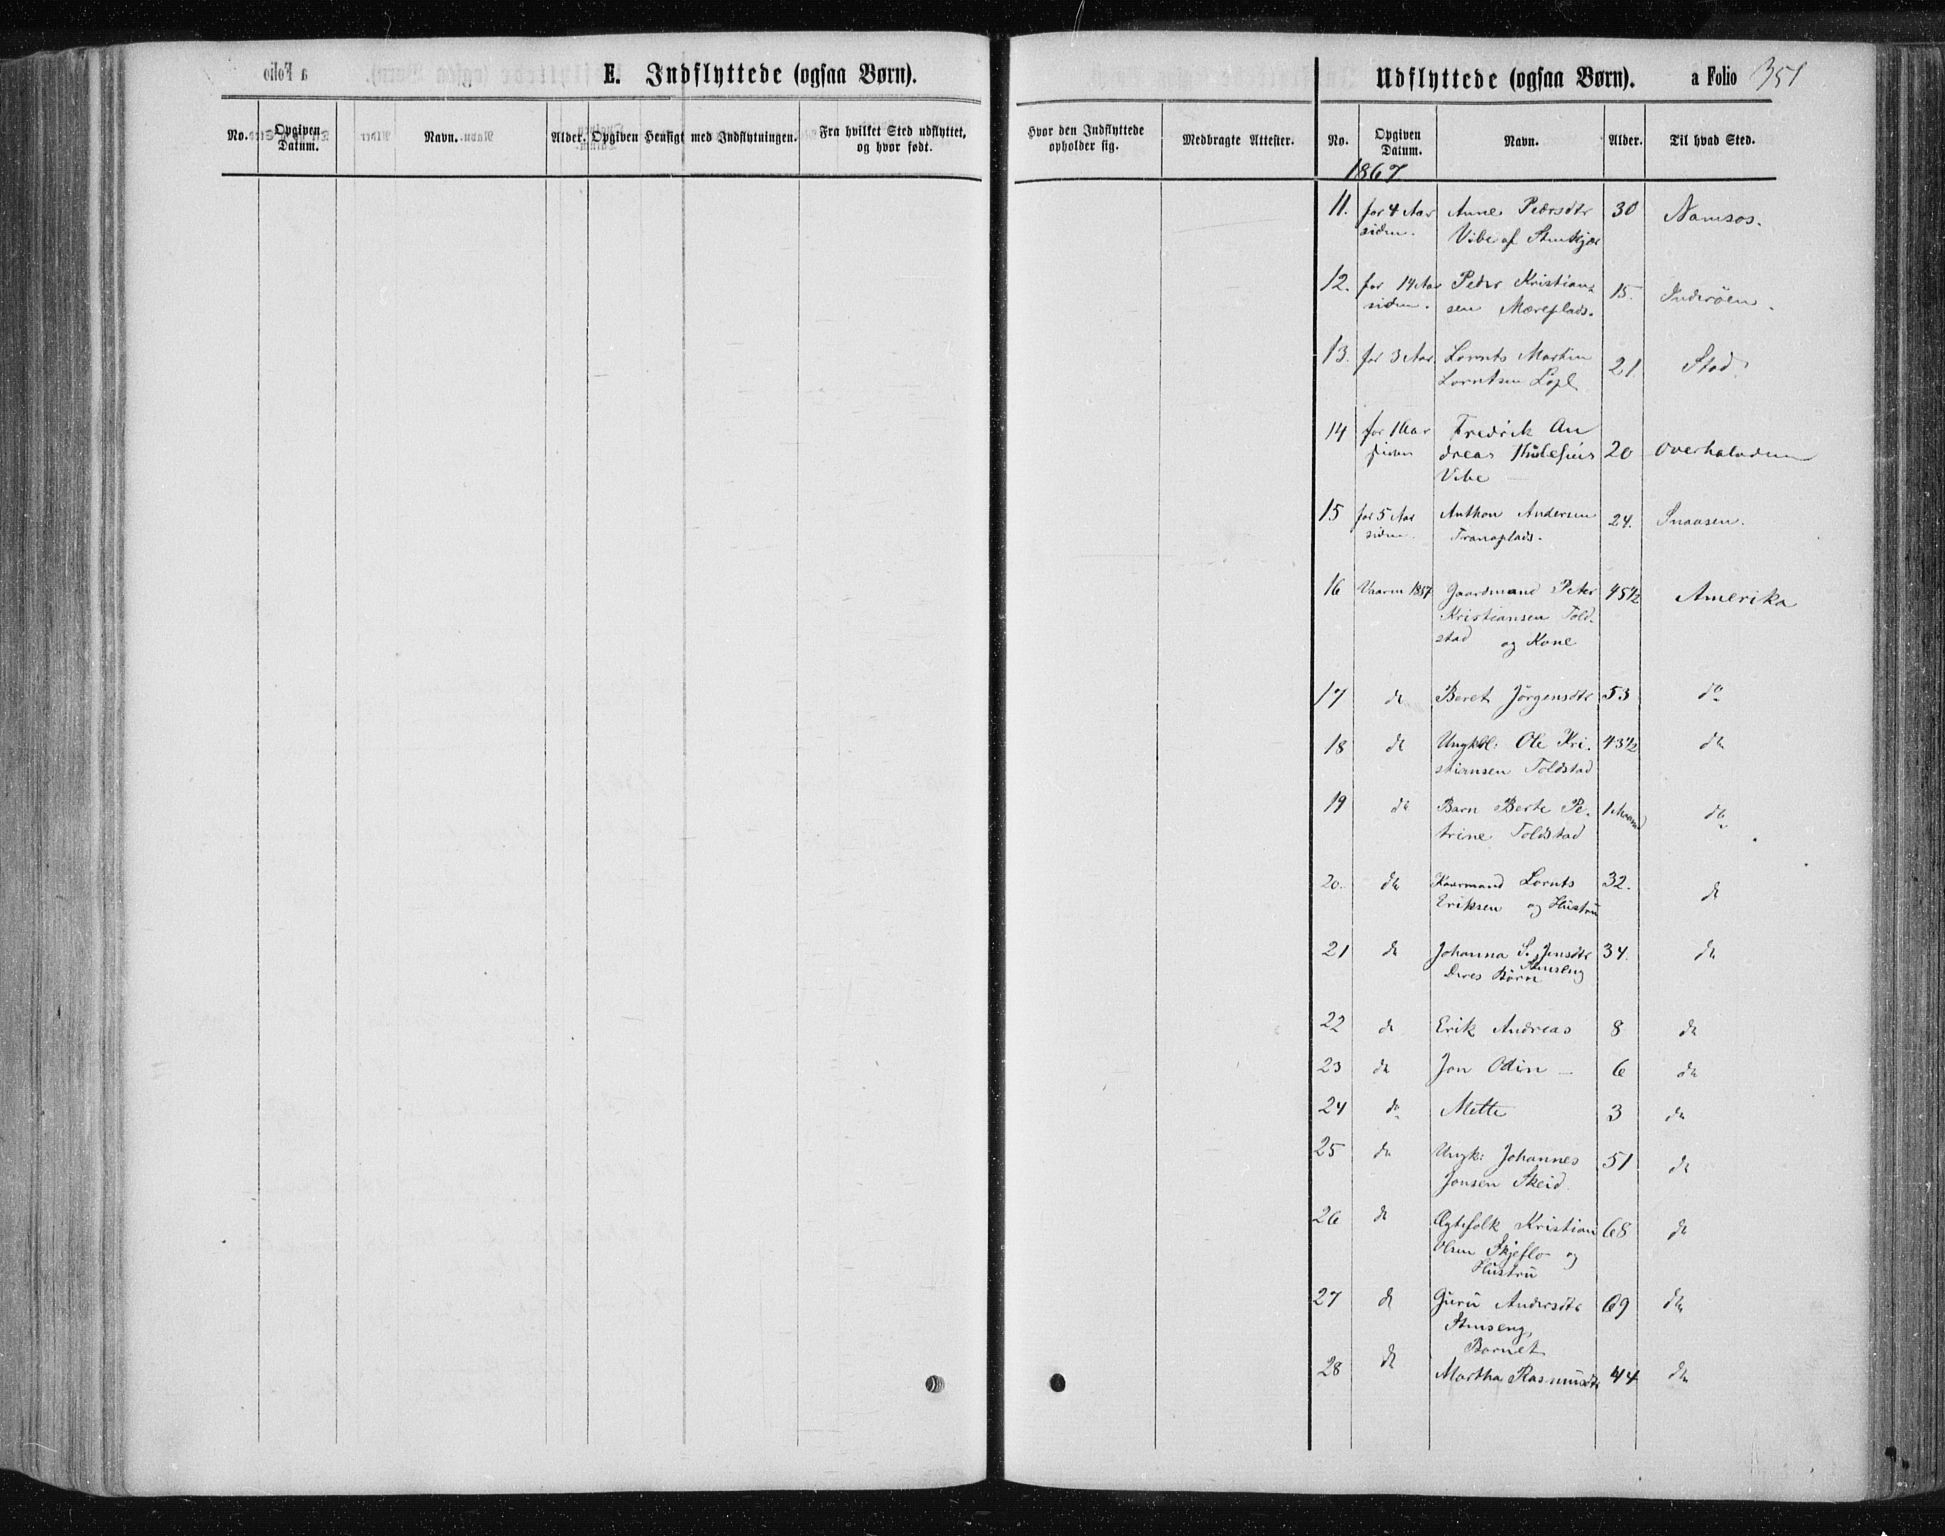 E. Indflyttede (ogsaa Børn).
No. Opgiven Datum. Navn. Alder. Opgiven Hensigt med Indflytningen. Fra hvilket Sted udflyttet, og hvor født.
Hvor den Indflyttede opholder sig. Medbragte Attester.
Udflyttede (ogsaa Børn). a Folio 351
No. Opgiven Datum. Navn. Alder. Til hvad Sted.
1867
11. for 4 Aar Anne Pedersdtr 30 Namsos.
siden. Vibe af Stenkjær
12. for 14 Aar Peder Kristian- 15. Inderöen.
siden. sen Mæreplads.
13. for 3 Aar Lornts Martin 21. Stod.
Lorntsen
14 for 1 Aar Fredrik An 20 Overhalvden
siden dreas
Vibe
15 for 5 Aar Anthon Andersen 24. Snaasen.
siden. Tranaplads.
16 Vaaren 1857 Gaardmand Peter 45½ Amerika
Kristiansen Told-
stad og Kone
17 do Beret Jörgensdtr 53 do
18 do Ungkl: Ole Kri- 43½ do
stiansen Toldstad
19 do Barn Berte Pe- 1 Maaned do
trine Toldstad
20. do Kaarmand Lornts 32. do
Eriksen og Hustru
21 do Johanna S. Jensdtr 34. do
Stenseng
Deres Börn
22 do Erik Andreas 8 do
23 do Jon Odin — 6 do
24 do Mette 3 do
25 do Ungk: Johannes 51 do
Jonsen Skeid.
26 do Ægtefolk Kristian 68 do
Olsen Skjeflo og
Hustru
27 do Guru Andersdtr 69 do
Stenseng,
Barnet
28 do Martha Rasmusdtr 44 do